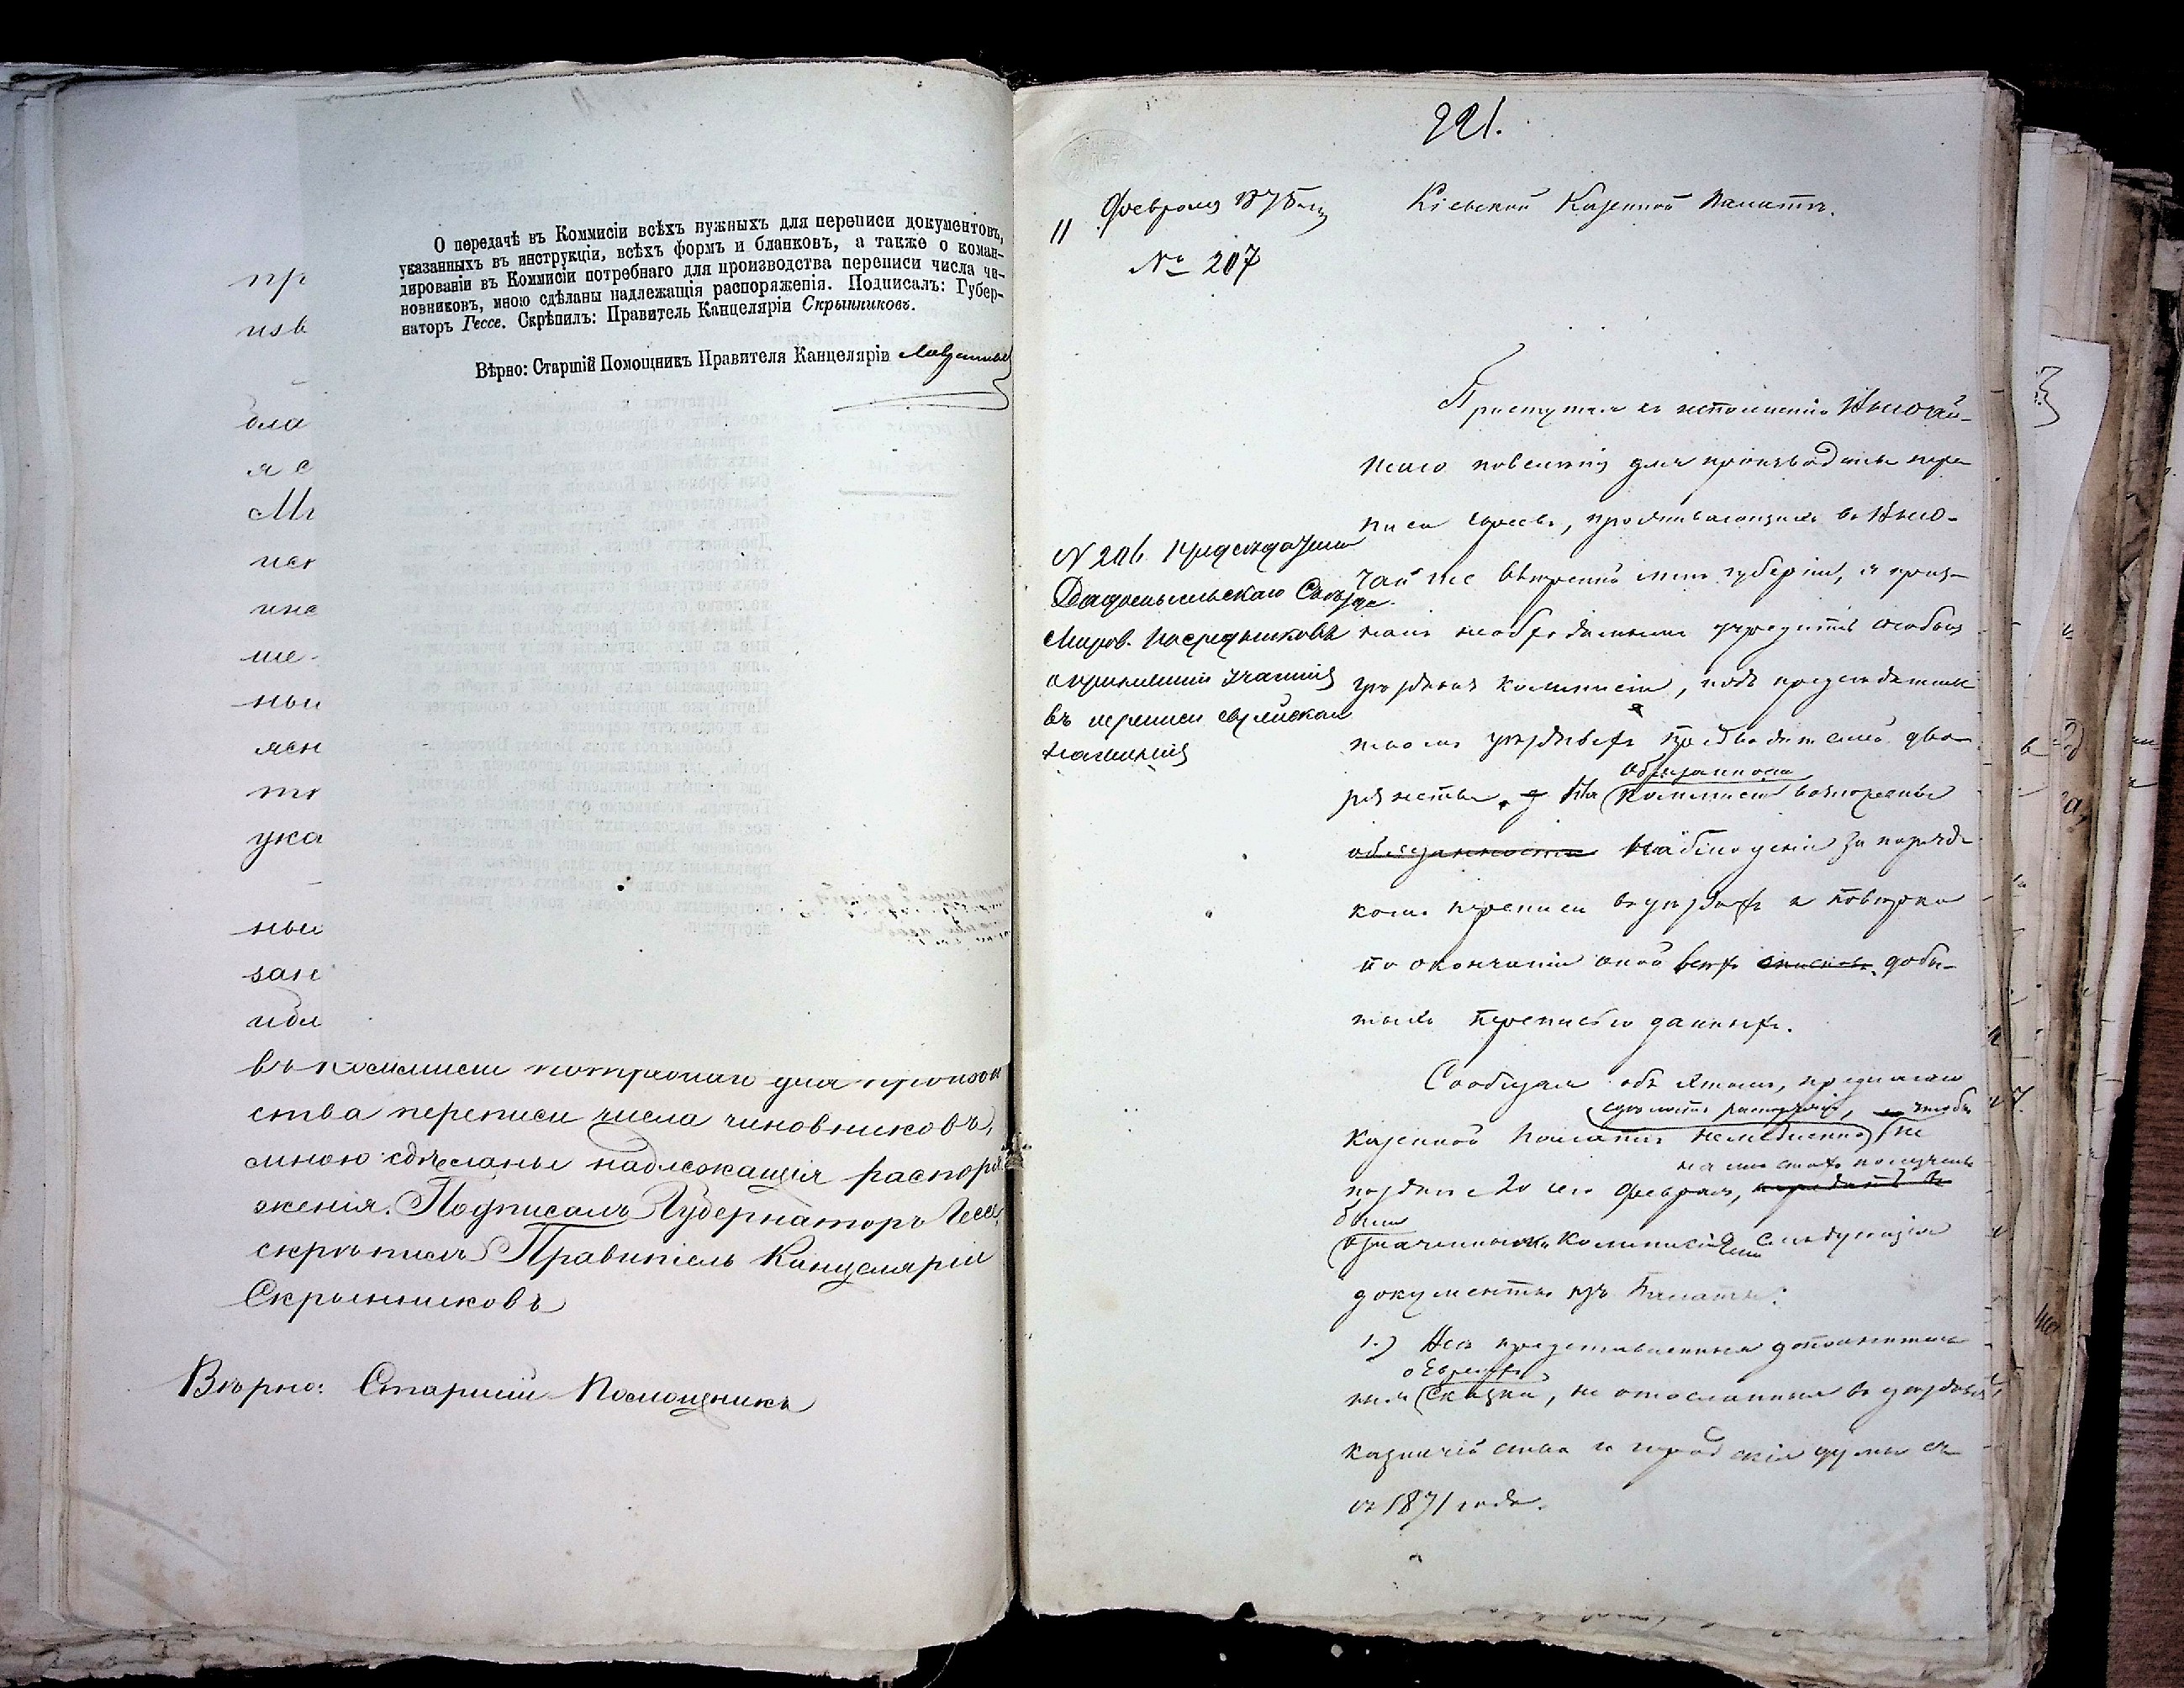 О передачѣ въ Коммисіи всѣхъ нужныхъ для переписи документовъ,
указанныхъ въ инструкціи, всѣхъ формъ и бланковъ, а также о коман-
дированіи въ Коммисіи потребнаго для производства переписи числа чи-
новниковъ, мною сдѣланы надлежащія распоряженія. Подписалъ: Губер-
наторъ Гессе. Скрѣпилъ: Правитель Канцеляріи Скрынниковъ.
Вѣрно: Старшій Помощникъ Правителя Канцеляріи
пр
изв
бла
я с
Мг
ист
ине
ше-
ныи
ясн
тг
ука
ныи
зан
идл
въ коммисіи потребнаго для произво
ства переписи числа чиновниковъ,
мною сдѣланы надлежащія распоря
женія. Подписалъ Губернаторъ Гессе,
скрѣпилъ Правитель Канцеляріи
Скрынниковъ
Вѣрно: Старшій Помощникъ
221.
11 Февраля 1875 года
№ 207
Кіевской Казенной Палатѣ.
№ 206. Предсѣдателю
Радомысльскаго Съѣзда
Миров. Посредниковъ
о принятіи участія
въ переписи еврейскаго
населенія
Приступая къ исполненію Высочай-
шаго повелѣнія для производства пере
писи евреевъ, проживающихъ въ Высо-
чайше ввѣренной мнѣ губерніи, я приз-
налъ необходимымъ учредить особыя
уѣздныя Коммисіи, подъ предсѣдатель
ствомъ уѣздныхъ Предводителей дво-
рянства. На обязанность
Коммисіи возложены
обязанности наблюденіе за поряд
комъ переписи въ уѣздахъ и повѣрка
по окончаніи оной всѣхъ списковъ добы-
тыхъ переписью данныхъ.
Сообщая объ этомъ, предлагаю
сдѣлать распоряженіе, чтобы
Казенной Палатѣ немедленно не
на мѣстахъ получены
позднѣе 20 сего Февраля, передать въ
были
означенными Коммисіями слѣдующіе
документы изъ Палаты:
1.) Всѣ представленныя дополнитель
о Евреяхъ
ныя сказки, не отосланныя въ уѣздныя
казначейства и городскія думы
въ 1871 годѣ.